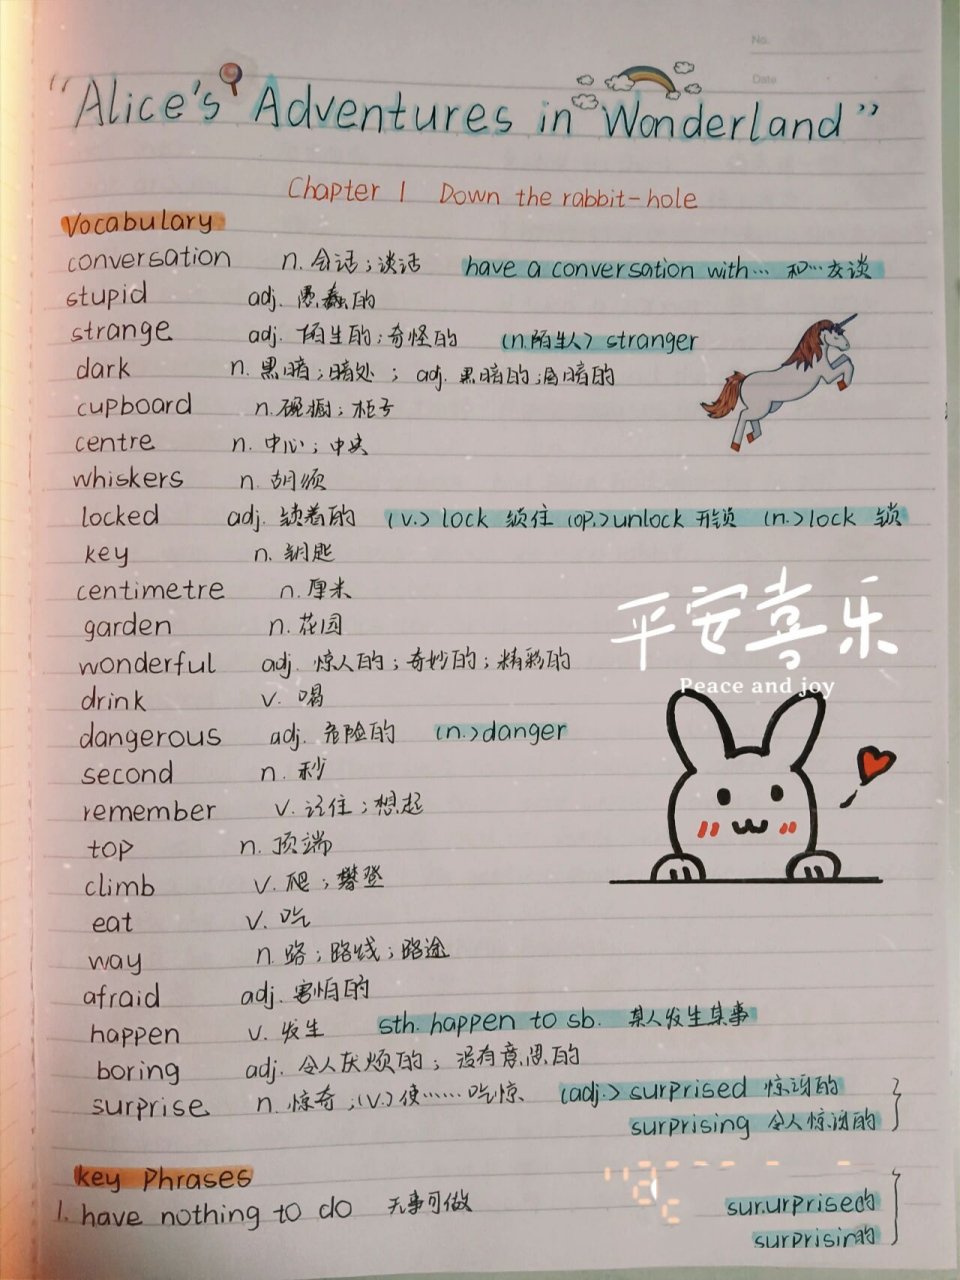 No.
Date
"Alice's Adventures in Wonderland"
Chapter 1 Down the rabbit-hole
Vocabulary
conversation n. 会话；谈话 have a conversation with… 和…交谈
stupid adj. 愚蠢的
strange adj. 陌生的；奇怪的 (n.陌生人) stranger
dark n. 黑暗；暗处； adj. 黑暗的；暗的
cupboard n. 碗橱；柜子
centre n. 中心；中央
whiskers n. 胡须
locked adj. 锁着的 (v.) lock 锁住 (op.) unlock 开锁 (n.) lock 锁
key n. 钥匙
centimetre n. 厘米
garden n. 花园
平安喜乐
wonderful adj. 惊人的；奇妙的；精彩的
Peace and joy
drink v. 喝
dangerous adj. 危险的 (n.) danger
second n. 秒
remember v. 记住；想起
top n. 顶端
climb v. 爬；攀登
eat v. 吃
way n. 路；路线；路途
afraid adj. 害怕的
happen v. 发生 sth. happen to sb. 某人发生某事
boring adj. 令人厌烦的；没有意思的
surprise n. 惊奇；(v.) 使……吃惊 (adj.) surprised 惊讶的
surprising 令人惊讶的
key Phrases
1. have nothing to do 无事可做
sur.urprised的
surprisin的